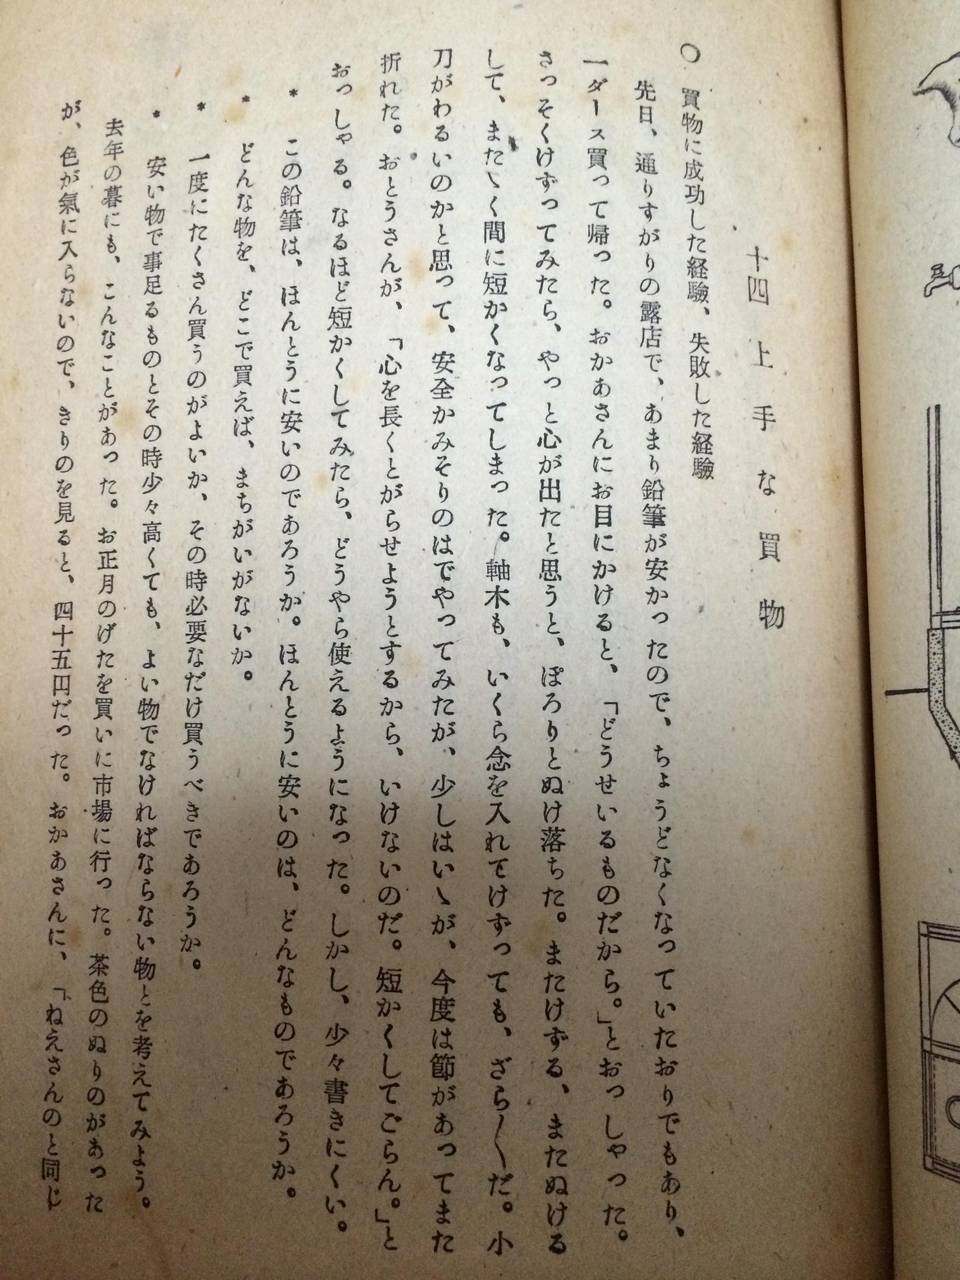 十四 上手な買物
○ 買物に成功した経験、失敗した経験
先日、通りすがりの露店で、あまり鉛筆が安かったので、ちょうどなくなっていたおりでもあり、
一ダース買って帰った。おかあさんにお目にかけると、「どうせいるものだから。」とおっしゃった。
さっそくけずってみたら、やっと心が出たと思うと、ぽろりとぬけ落ちた。またけずる、またぬける
して、またゝく間に短かくなってしまった。軸木も、いくら念を入れてけずっても、ざら〱だ。小
刀がわるいのかと思って、安全かみそりのはでやってみたが、少しはいゝが、今度は節があってまた
折れた。おとうさんが、「心を長くとがらせようとするから、いけないのだ。短かくしてごらん。」と
おっしゃる。なるほど短かくしてみたら、どうやら使えるようになった。しかし、少々書きにくい。
* この鉛筆は、ほんとうに安いのであろうか。ほんとうに安いのは、どんなものであろうか。
* どんな物を、どこで買えば、まちがいがないか。
* 一度にたくさん買うのがよいか、その時必要なだけ買うべきであろうか。
* 安い物で事足るものとその時少々高くても、よい物でなければならない物とを考えてみよう。
去年の暮にも、こんなことがあった。お正月のげたを買いに市場に行った。茶色のぬりのがあった
が、色が氣に入らないので、きりのを見ると、四十五円だった。おかあさんに、「ねえさんのと同じ